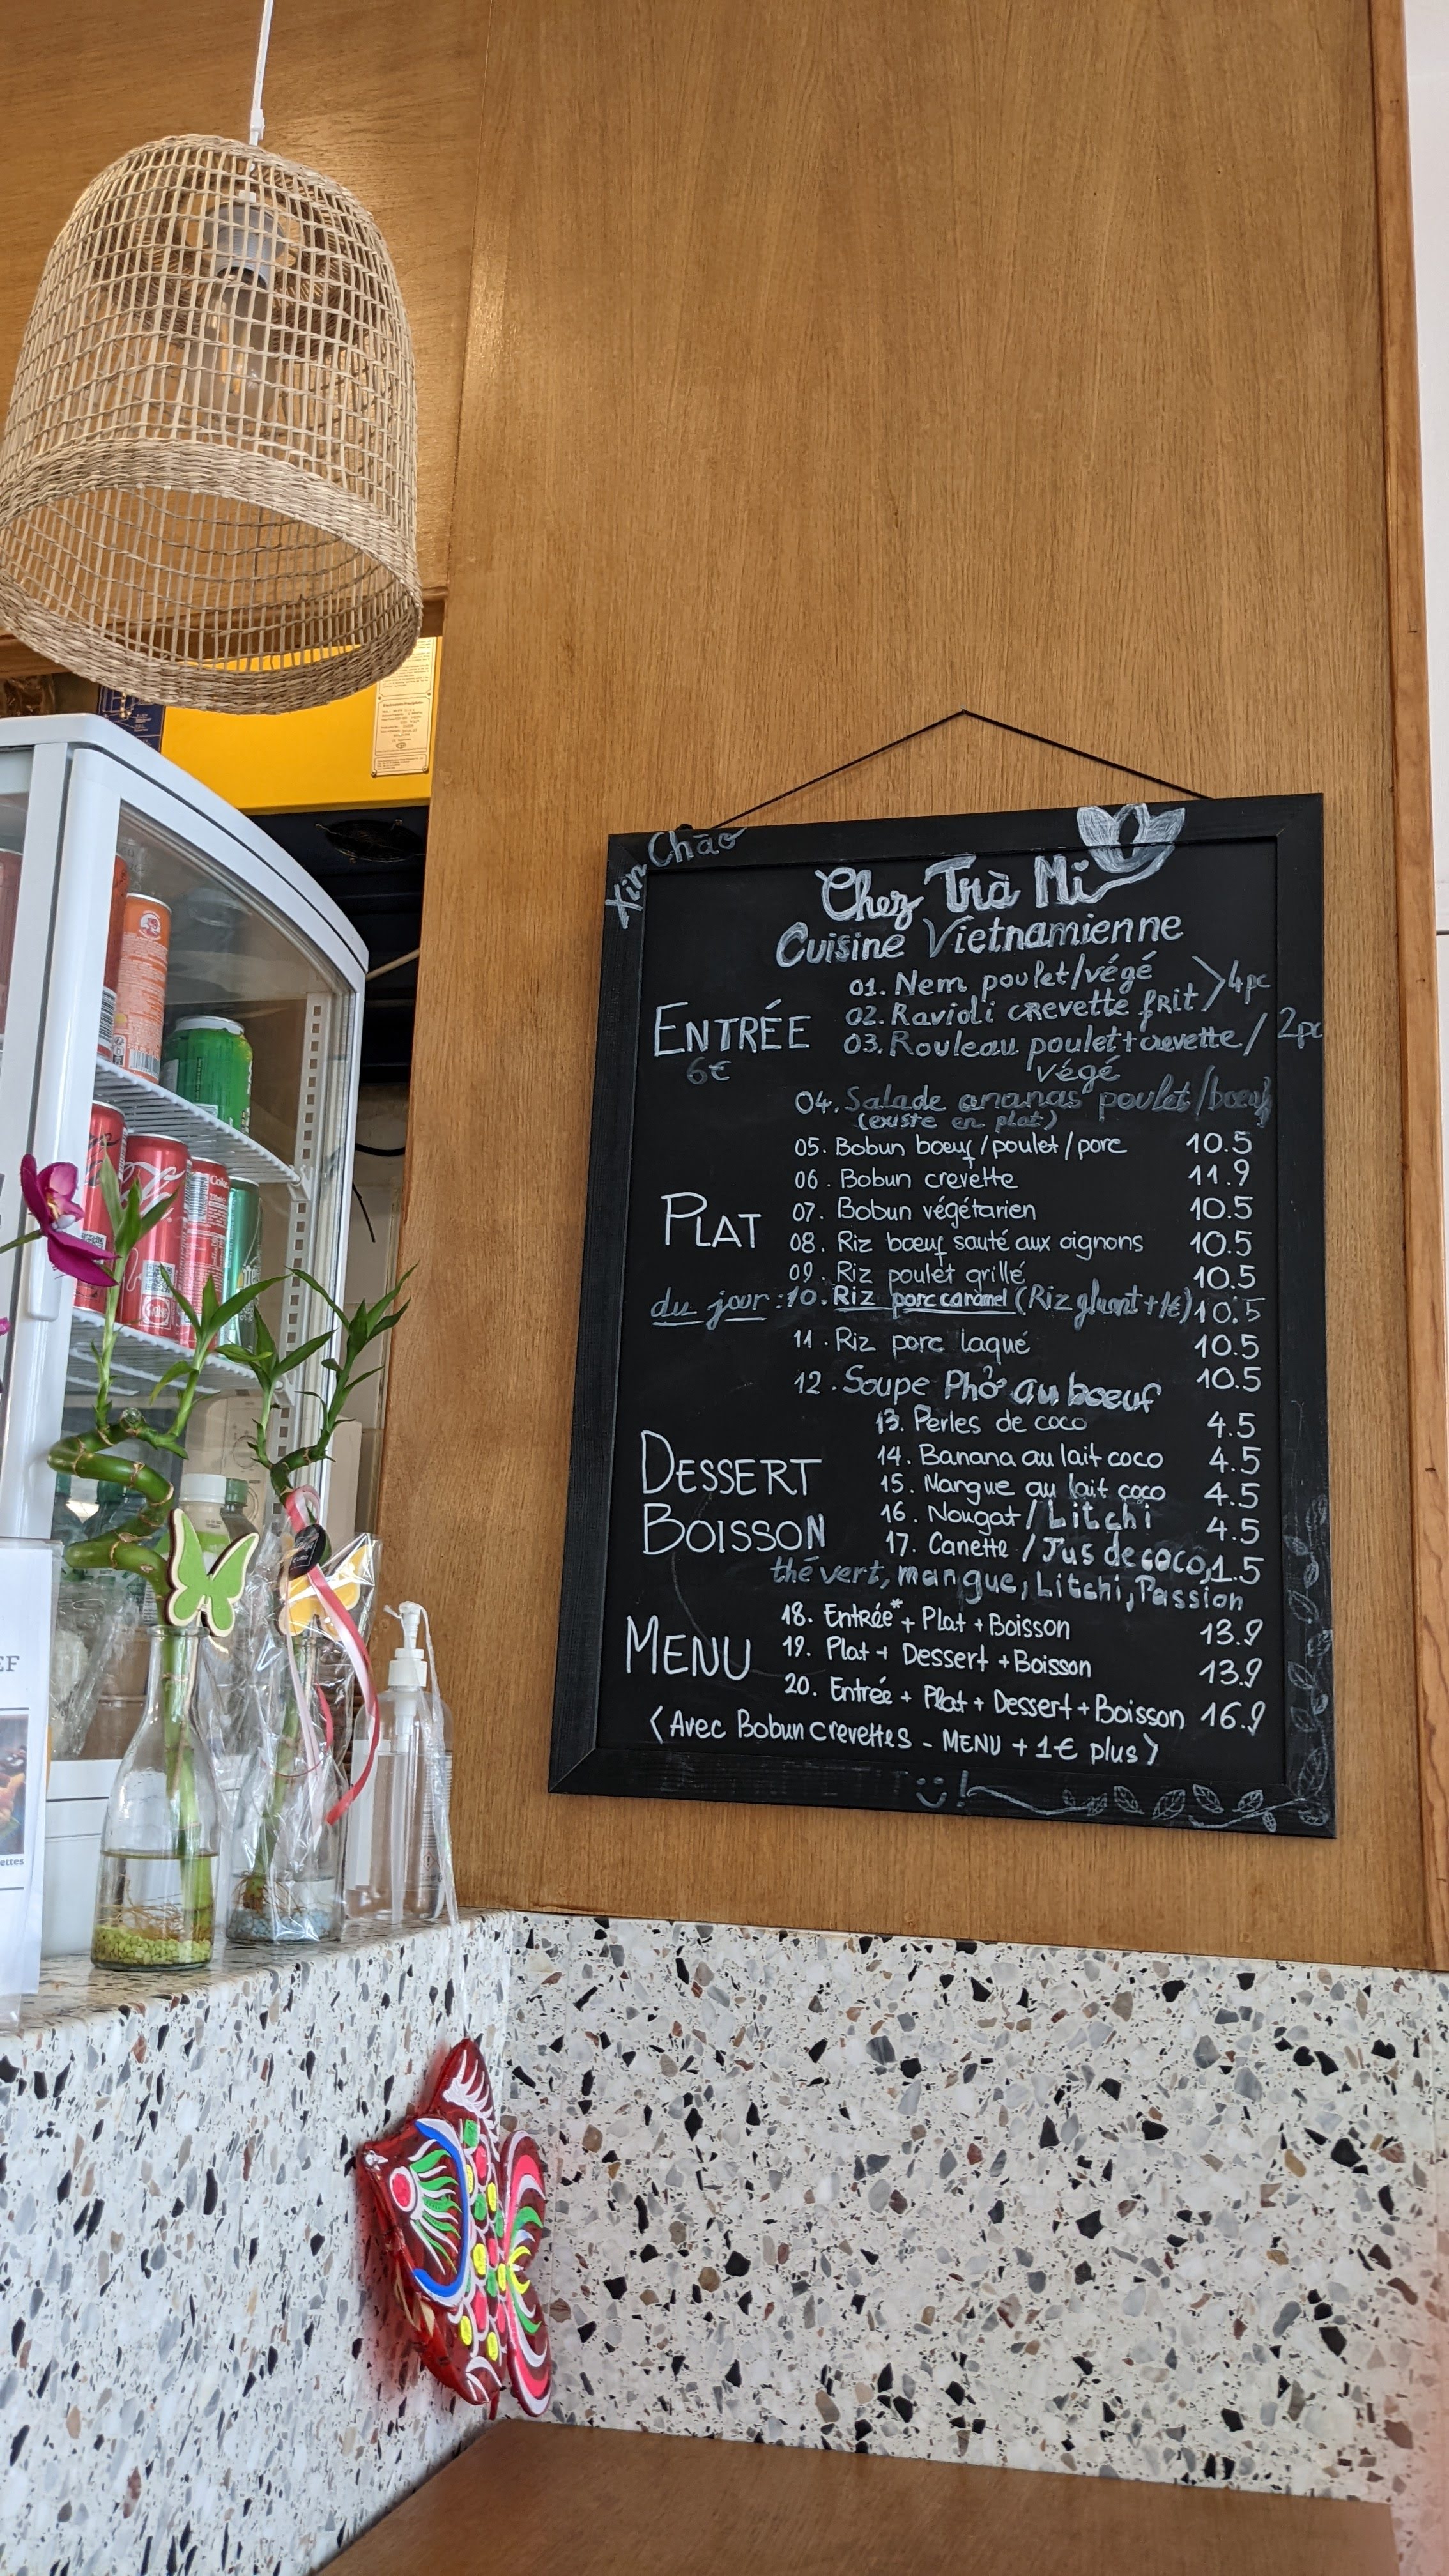 Xin Chào
Chez Trà Mi
Cuisine Vietnamienne
ENTRÉE
6€
01. Nem poulet/végé
02. Ravioli crevette frit > 4pc
03. Rouleau poulet+crevette/ 2pc
végé
04. Salade ananas poulet/boeuf
(existe en plat)
PLAT
05. Bobun boeuf/poulet/porc 10.5
06. Bobun crevette 11.9
07. Bobun végétarien 10.5
08. Riz boeuf sauté aux oignons 10.5
09. Riz poulet grillé 10.5
du jour: 10. Riz porc caramel (Riz gluant+1€) 10.5
11. Riz porc laqué 10.5
12. Soupe Phở au boeuf 10.5
DESSERT
13. Perles de coco 4.5
14. Banana au lait coco 4.5
15. Mangue au lait coco 4.5
16. Nougat/Litchi 4.5
BOISSON
17. Canette/Jus de coco, 1.5
thé vert, mangue, Litchi, Passion
MENU
18. Entrée* + Plat + Boisson 13.9
19. Plat + Dessert + Boisson 13.9
20. Entrée + Plat + Dessert + Boisson 16.9
(Avec Bobun crevettes - MENU + 1€ plus)
Coke
EF
ettes